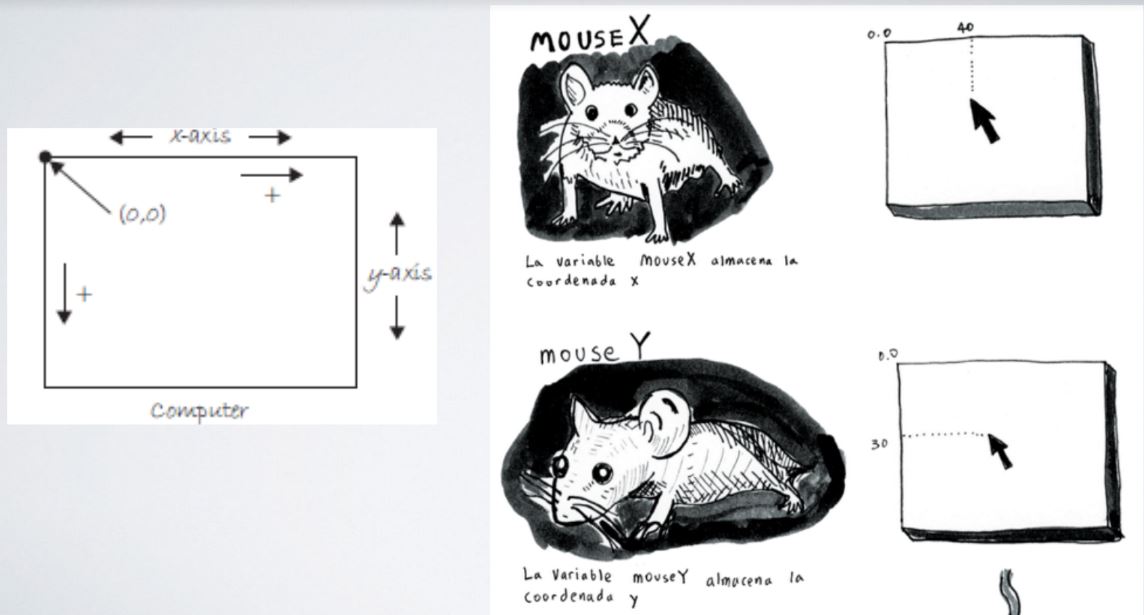 x-axis
+
(0,0)
y-axis
+
Computer
mouseX
0.0
40
La variable mouseX almacena la
coordenada x
mouse Y
0.0
30
La variable mouseY almacena la
coordenada y